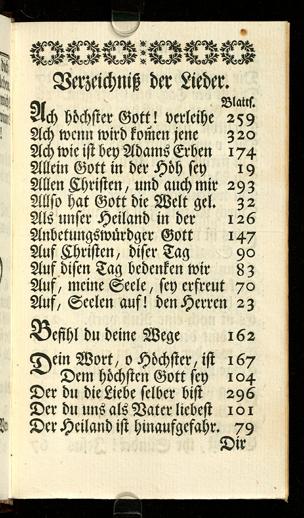 Verzeichniß der Lieder.
Blats.
Ach höchster Gott! verleihe 259
Ach wenn wird kom̃en jene 320
Ach wie ist bey Adams Erben 174
Allein Gott in der Höh sey 19
Allen Christen, und auch mir 293
Allso hat Gott die Welt gel. 32
Als unser Heiland in der 126
Anbetungswürdger Gott 147
Auf Christen, diser Tag 90
Auf disen Tag bedenken wir 83
Auf, meine Seele, sey erfreut 70
Auf, Seelen auf! den Herren 23
Befihl du deine Wege 162
Dein Wort, o Höchster, ist 167
Dem höchsten Gott sey 104
Der du die Liebe selber bist 296
Der du uns als Vater liebest 101
Der Heiland ist hinaufgefahr. 79
Dir